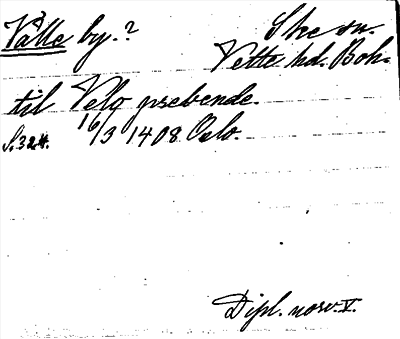 Valle by.?
Skee sn.
Vette hd. Boh.
til Velo prebende.
S. 324. 16/3 1408 Oslo.
Dipl. norv. V.